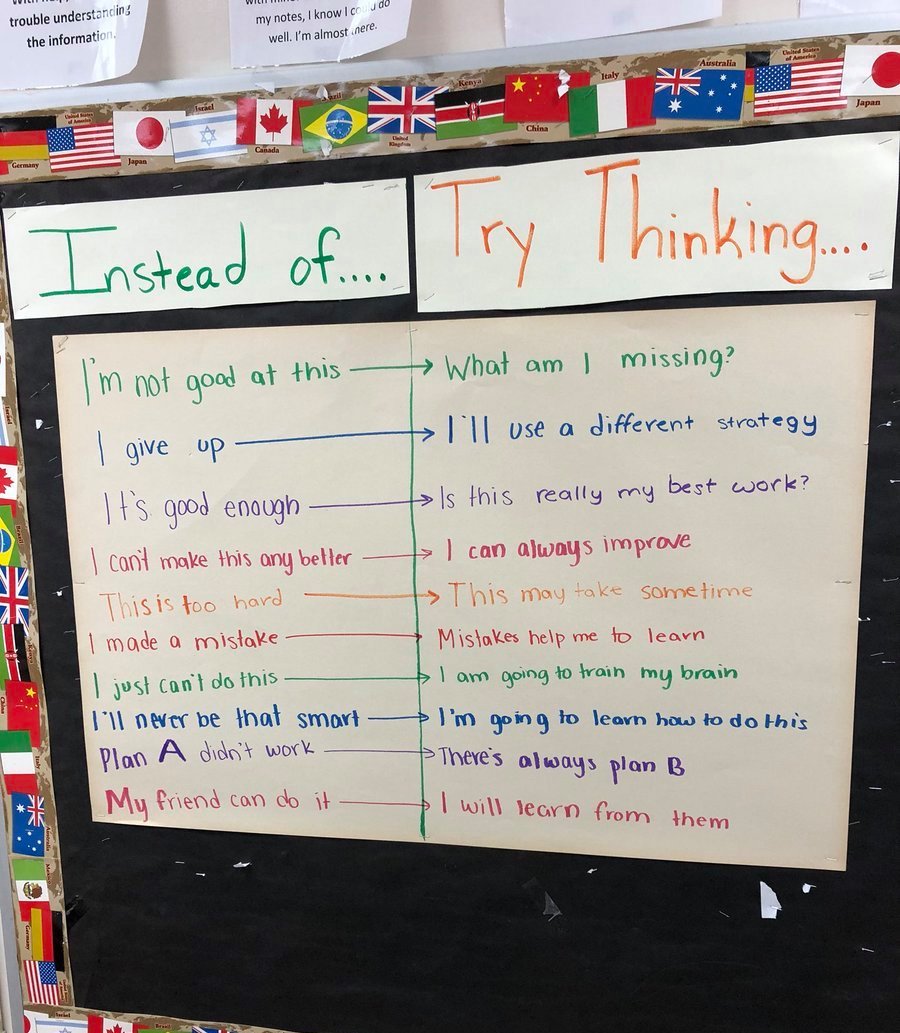 trouble understanding
the information.
my notes, I know I could do
well. I'm almost there.
Germany
United States of America
Japan
Israel
Canada
Brazil
United Kingdom
Kenya
China
Italy
Australia
United States of America
Japan
Instead of....
Try Thinking....
I'm not good at this → What am I missing?
I give up → I'll use a different strategy
It's good enough → Is this really my best work?
I can't make this any better → I can always improve
This is too hard → This may take sometime
I made a mistake → Mistakes help me to learn
I just can't do this → I am going to train my brain
I'll never be that smart → I'm going to learn how to do this
Plan A didn't work → There's always plan B
My friend can do it → I will learn from them
Israel
Brazil
China
Italy
Australia
Mexico
Germany
Israel
Brazil